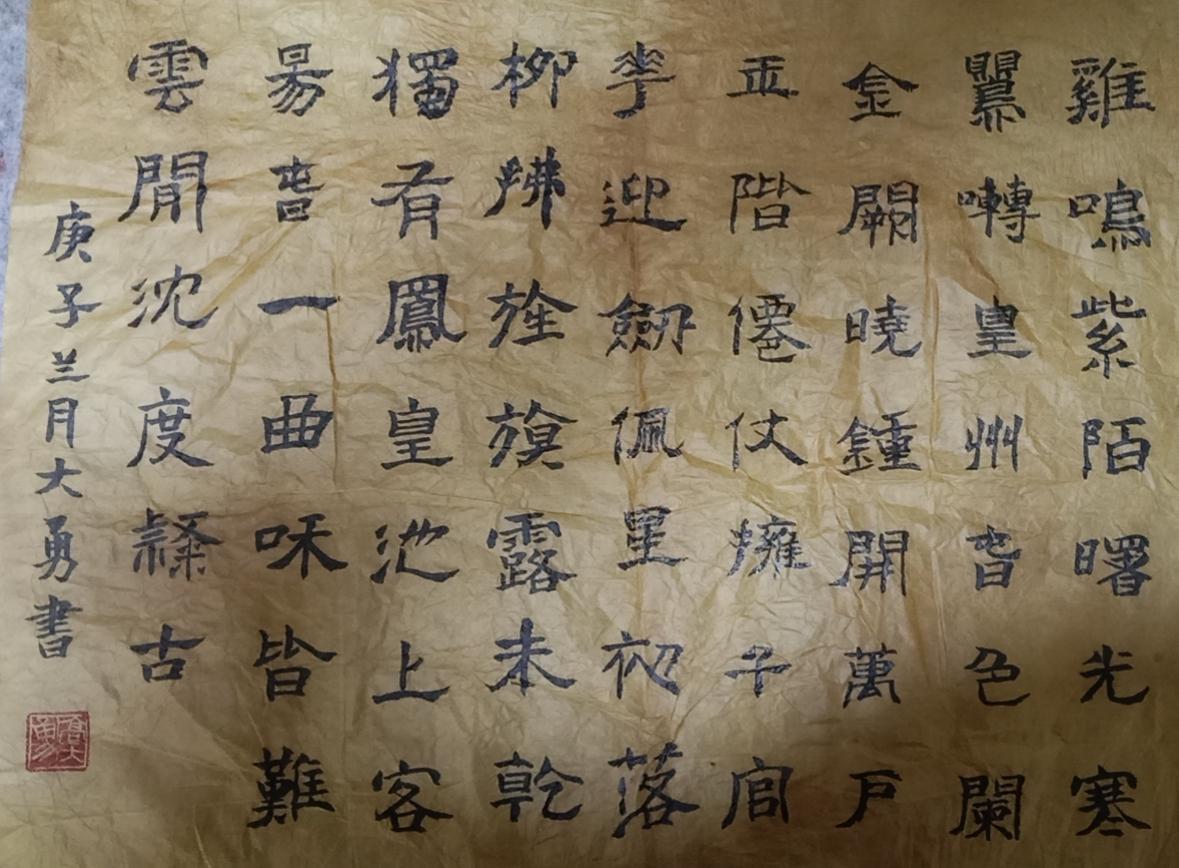 雞鳴紫陌曙光寒
鸎囀皇州旾色闌
金闕曉鍾開萬戶
玉階僊仗擁千官
華迎劒佩星初落
柳拂旌旗露未乾
獨有鳳皇池上客
昜旾一曲咊皆難
雲閒沈度隸古
庚子兰月大勇書